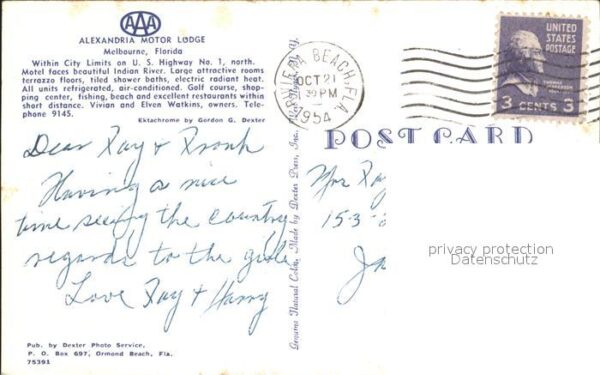 AAA
ALEXANDRIA MOTOR LODGE
Melbourne, Florida
Within City Limits on U. S. Highway No. 1, north.
Motel faces beautiful Indian River. Large attractive rooms
terrazo floors, tiled shower baths, electric radiant heat.
All units refrigerated, air-conditioned. Golf course, shop-
ping center, fishing, beach and excellent restaurants within
short distance. Vivian and Elven Watkins, owners. Tele-
phone 9145.
Ektachrome by Gordon G. Dexter
Dear Fay & Frank
Having a nice
time seeing the country
regards to the
Love Fay & Harry
Pub. by Dexter Photo Service,
P. O. Box 697, Ormond Beach, Fla.
75391
Natural Color, Made by Dexter Press, Inc.
RIVIERA BEACH, FLA.
OCT 21
PM
1954
UNITED
STATES
POSTAGE
3 CENTS 3
POST CARD
15-3
privacy protection
Datenschutz